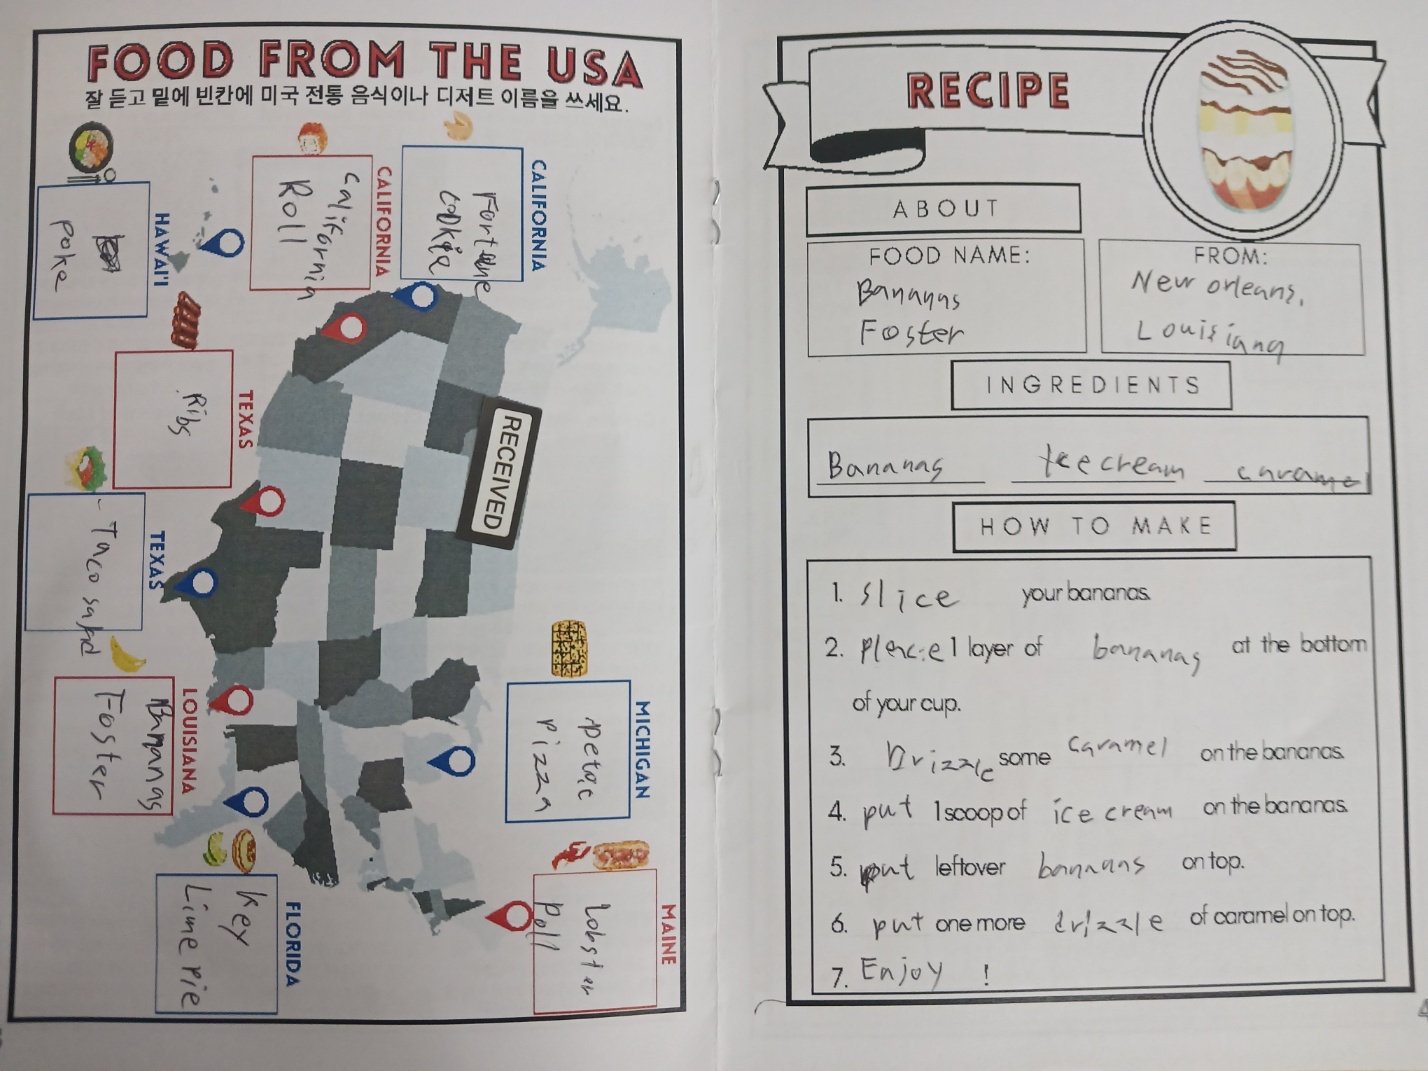 FOOD FROM THE USA
잘 듣고 밑에 빈칸에 미국 전통 음식이나 디저트 이름을 쓰세요.
CALIFORNIA
Fortune
cookie
CALIFORNIA
California
Roll
HAWAI'I
poke
TEXAS
Ribs
TEXAS
Taco salad
LOUISIANA
Bananas
Foster
FLORIDA
Key
Lime pie
MICHIGAN
MAINE
Lobster
RECEIVED
RECIPE
ABOUT
FOOD NAME:
Bananas
Foster
FROM:
New orleans,
Louisiana
INGREDIENTS
Bananas Ice cream caramel
HOW TO MAKE
1. slice your bananas.
2. 1 layer of bananas at the bottom
of your cup.
3. Drizzle some caramel on the bananas.
4. put 1 scoop of ice cream on the bananas.
5. put leftover bananas on top.
6. put one more drizzle of caramel on top.
7. Enjoy !